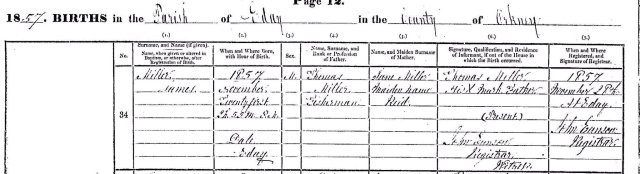 Page 12.
1857. BIRTHS in the Parish of Eday in the County of Orkney
(1.) (2.) (3.) (4.) (5.) (6.) (7.)
No. Surname, and Name (if given). When name, given or altered in Baptism, or otherwise, after Registration of Birth. When and Where Born, with Hour of Birth. Sex. Name, Surname, and Rank or Profession of Father. Name, and Maiden Surname of Mother. Signature, Qualification, and Residence of Informant, if out of the House in which the Birth occurred. When and Where Registered, and Signature of Registrar.
Miller 1857 M. Thomas Jane Miller Thomas Miller 1857
James November Miller Maiden name His X Mark Father November 28th
Twentyfirst Fisherman Reid At Eday
34 5h M. (Present)
John Eunson
Eday John Eunson Registrar
Registrar
Witness